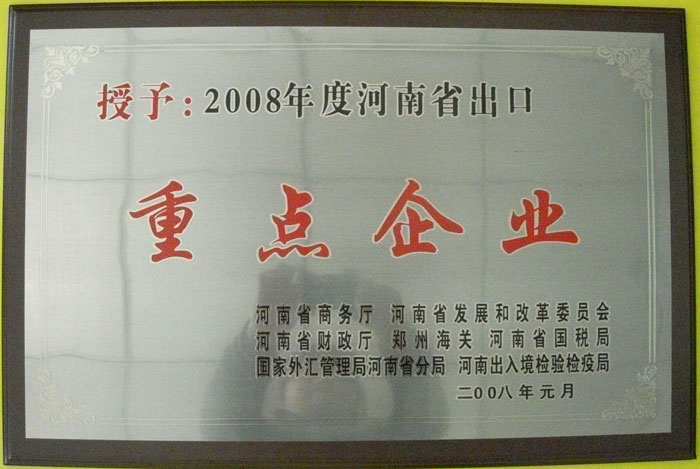 授予：2008年度河南省出口
重点企业
河南省商务厅 河南省发展和改革委员会
河南省财政厅 郑州海关 河南省国税局
国家外汇管理局河南省分局 河南出入境检验检疫局
二00八年元月